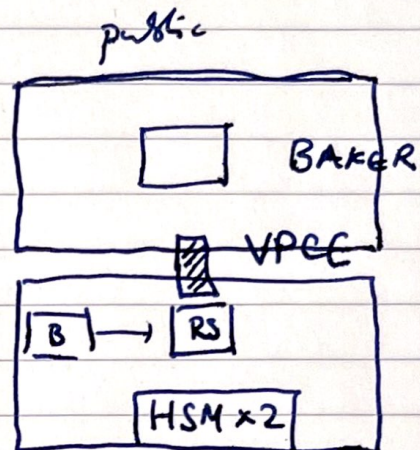 public
BAKER
VPCE
B
RS
HSM x2